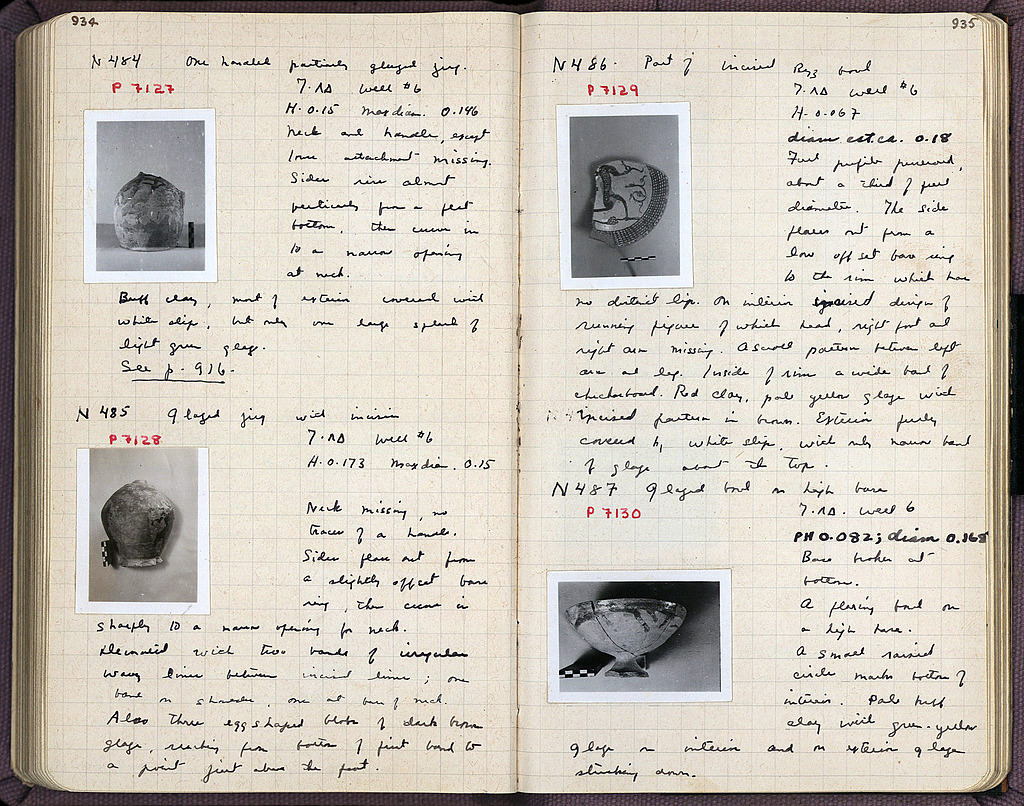 934
N 484 One handled partially glazed jug.
P 7127
7. ΛΔ well #6
H. 0.15 Max diam. 0.146
Neck and handle, except
lower attachment missing.
Sides rise almost
vertically from a flat
bottom, then curve in
to a narrow opening
at neck.
Buff clay, most of exterior covered with
white slip, but only one large splash of
light green glaze.
See p. 916.
N 485 Glazed jug with incision
P 7128
7. ΛΔ well #6
H. 0.173 Max diam. 0.15
Neck missing, no
traces of a handle.
Sides flare out from
a slightly offset base
ring, then curve in
sharply to a narrow opening for neck.
Decorated with two bands of irregular
wavy lines between incised lines; one
band on shoulder, one at base of neck.
Also three egg shaped blobs of dark brown
glaze, reaching from bottom of first band to
a point just above the foot.
935
N 486. Part of incised Byz bowl
P 7129
7. ΛΔ well #6
H. 0.067
diam est. ca. 0.18
Full profile preserved,
about a third of full
diameter. The side
flares out from a
low off set base ring
to the rim which has
no distinct lip. On interior incised design of
running figure of which head, right foot and
right arm missing. A scroll pattern between left
arm and leg. Inside of rim a wide band of
checkerboard. Red clay, pale yellow glaze with
incised pattern in brown. Exterior partly
covered by white slip, with only narrow band
of glaze about the top.
N 487 Glazed bowl on high base
P 7130
7. ΛΔ. well 6
PH 0.082; diam 0.168
Base broken at
bottom.
A flaring bowl on
a high base.
A small raised
circle marks bottom of
interior. Pale buff
clay with green-yellow
glaze on interior and on exterior glaze
streaking down.